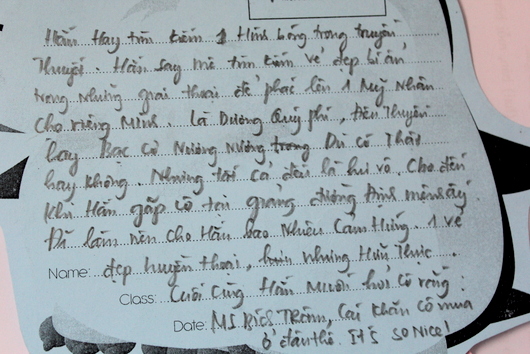 Hắn Hay tìm kiếm 1 Hình bóng trong truyền
Thuyết. Hắn say mê tìm kiếm vẻ đẹp bí ẩn
trong Những giai thoại để phác lên 1 Mỹ Nhân
Cho riêng Mình. Là Dương Quý phi, Điêu Thuyền
hay Bạc Cơ Nương Nương trong Dù có Thật
hay không. Nhưng tất cả đều là hư vô. Cho đến
khi Hắn gặp cô tại giảng đường Định mệnh ấy.
Đã làm nên cho Hắn bao Nhiêu Cảm Hứng 1 vẻ
Name: đẹp huyền thoại, Nhưng Hiện Thực
Class: Cuối Cùng Hắn Mười hỏi cô rằng:
Date: MS BÍCH TRÂM, Cái khăn cô mua
ở đâu thế. It's so Nice!